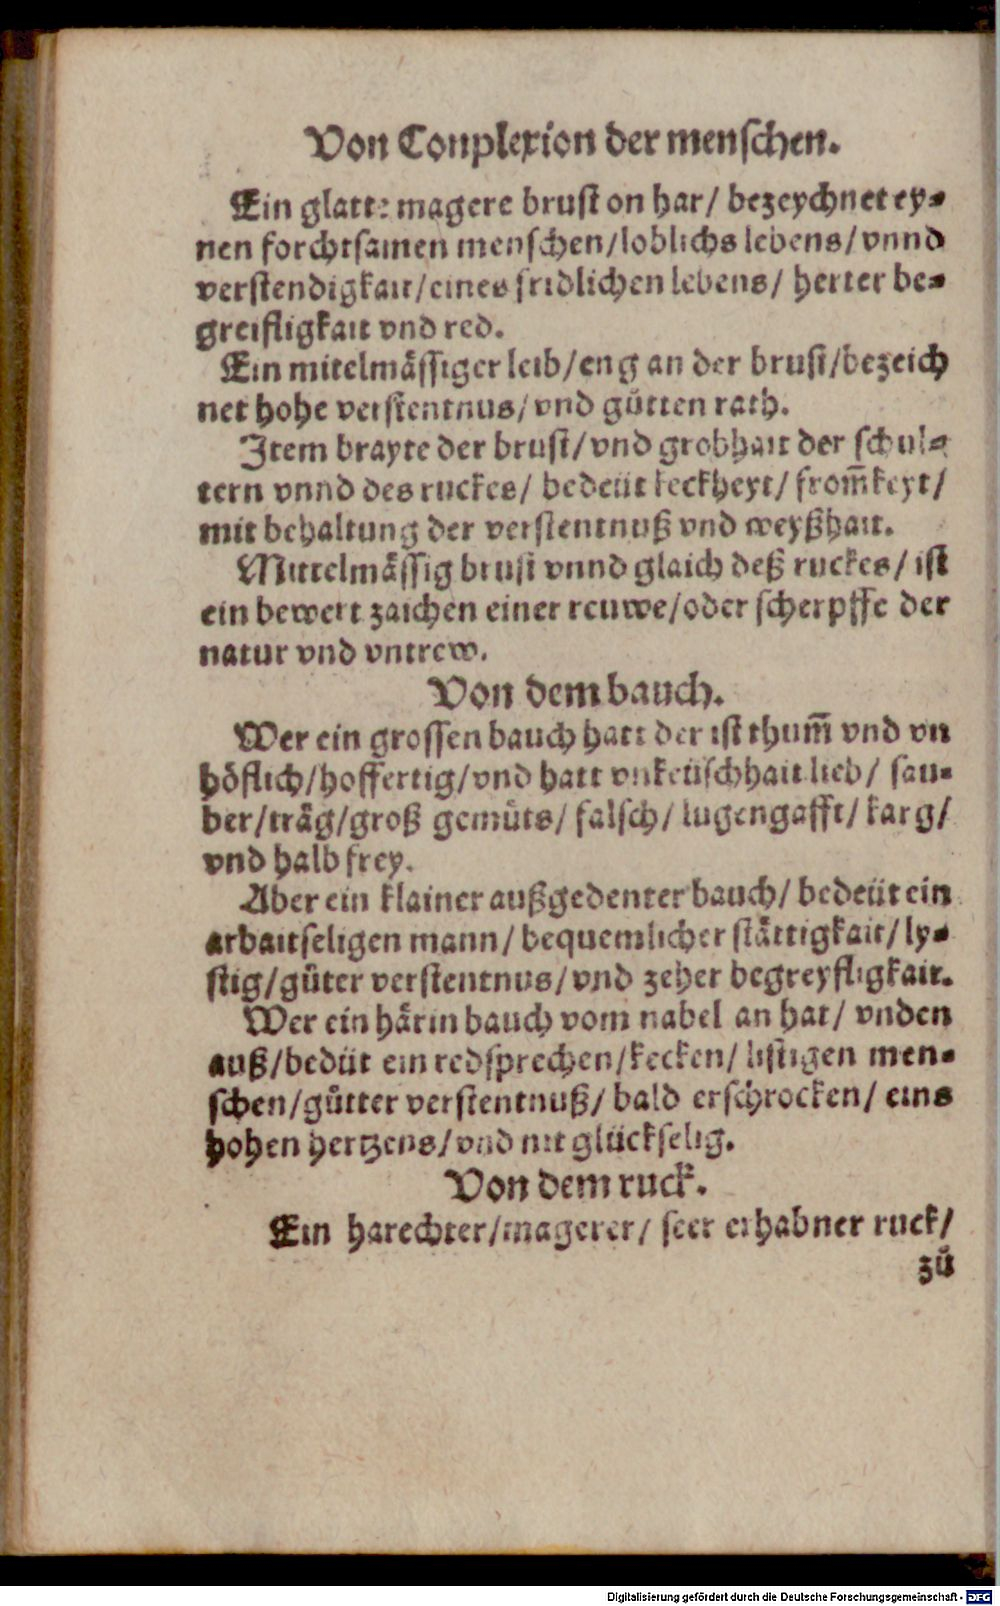 Von Conplexion der menschen.
Ein glatte magere brust on har/ bezeychnet ey-
nen forchtsamen menschen/loblichs lebens/vnnd
verstendigkait/eines fridlichen lebens/ herter be-
greifligkait vnd red.
Ein mitelmässiger leib/eng an der brust/bezeich
net hohe verstentnus/vnd gůtten rath.
Item brayte der brust/vnd grobhait der schul-
tern vnnd des ruckes/ bedeüt keckheyt/ from̄keyt/
mit behaltung der verstentnuß vnd weyßhait.
Mittelmässig brust vnnd glaich deß ruckes/ ist
ein bewert zaichen einer reuwe/oder scherpffe der
natur vnd vntrew.
Von dem bauch.
Wer ein grossen bauch hatt der ist thum̄ vnd vn
höflich/hoffertig/vnd hatt vnkeüschhait lieb/ sau-
ber/träg/groß gemüts/ falsch/ lugengafft/ karg/
vnd halb frey.
Aber ein klainer außgedenter bauch/ bedeüt ein
arbaitseligen mann/ bequemlicher stättigkait/ ly-
stig/gůter verstentnus/vnd zeher begreyfligkait.
Wer ein härin bauch vom nabel an hat/ vnden
auß/bedüt ein redsprechen/kecken/ listigen men-
schen/gůtter verstentnuß/ bald erschrocken/ eins
hohen hertzens/vnd nit glückselig.
Von dem ruck.
Ein harechter/magerer/ seer erhabner ruck/
zů
Digitalisierung gefördert durch die Deutsche Forschungsgemeinschaft - DFG